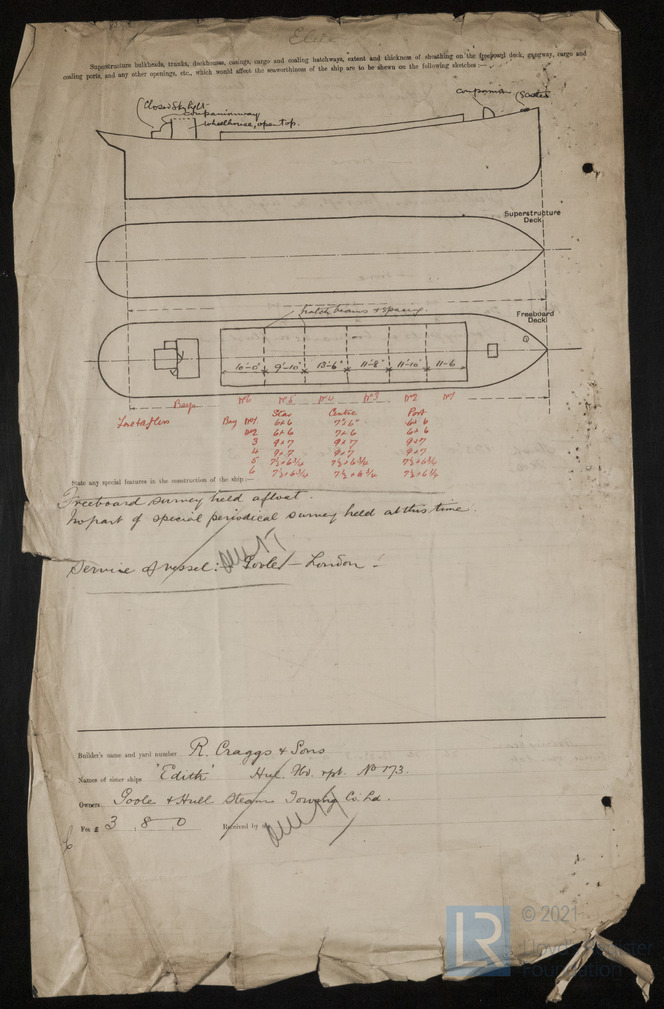 Superstructure bulkheads, trunks, deckhouses, casings, cargo and coaling hatchways, extent and thickness of sheathing on the freeboard deck, gangway, cargo and
coaling ports, and any other openings, etc., which would affect the seaworthiness of the ship are to be shown on the following sketches :—
companion Scuttle
Closed Skylight
companionway
wheelhouse, open top.
Superstructure
Deck
hatch beams & spacing.
Freeboard
Deck
10'-0" 9'-10" 13'-6" 11'-8" 11'-10" 11-6
Bays No 6 No 5 No 4 No 3 No 2 No 1
Star Centre Port
Bay No 1 6+6 7+6 6+6
No 2 6+6 7+6 6+6
3 9+7 9+7 9+7
4 9+7 9+7 9+7
5 7½+6¾ 7½+6¾ 7½+6¾
6 7½+6¾ 7½+6¾ 7½+6¾
State any special features in the construction of the ship :—
Freeboard survey held afloat.
No part of special periodical survey held at this time.
Service of vessel:- Goole - London -
Builder's name and yard number R. Craggs & Sons
Names of sister ships "Edith" Hul. Fbd. rpt. No 173.
Owners Goole & Hull Steam Towing Co. Ld.
Fee £ 3 . 8 . 0 Received by
LR
© 2021
Lloyd's Register
Foundation